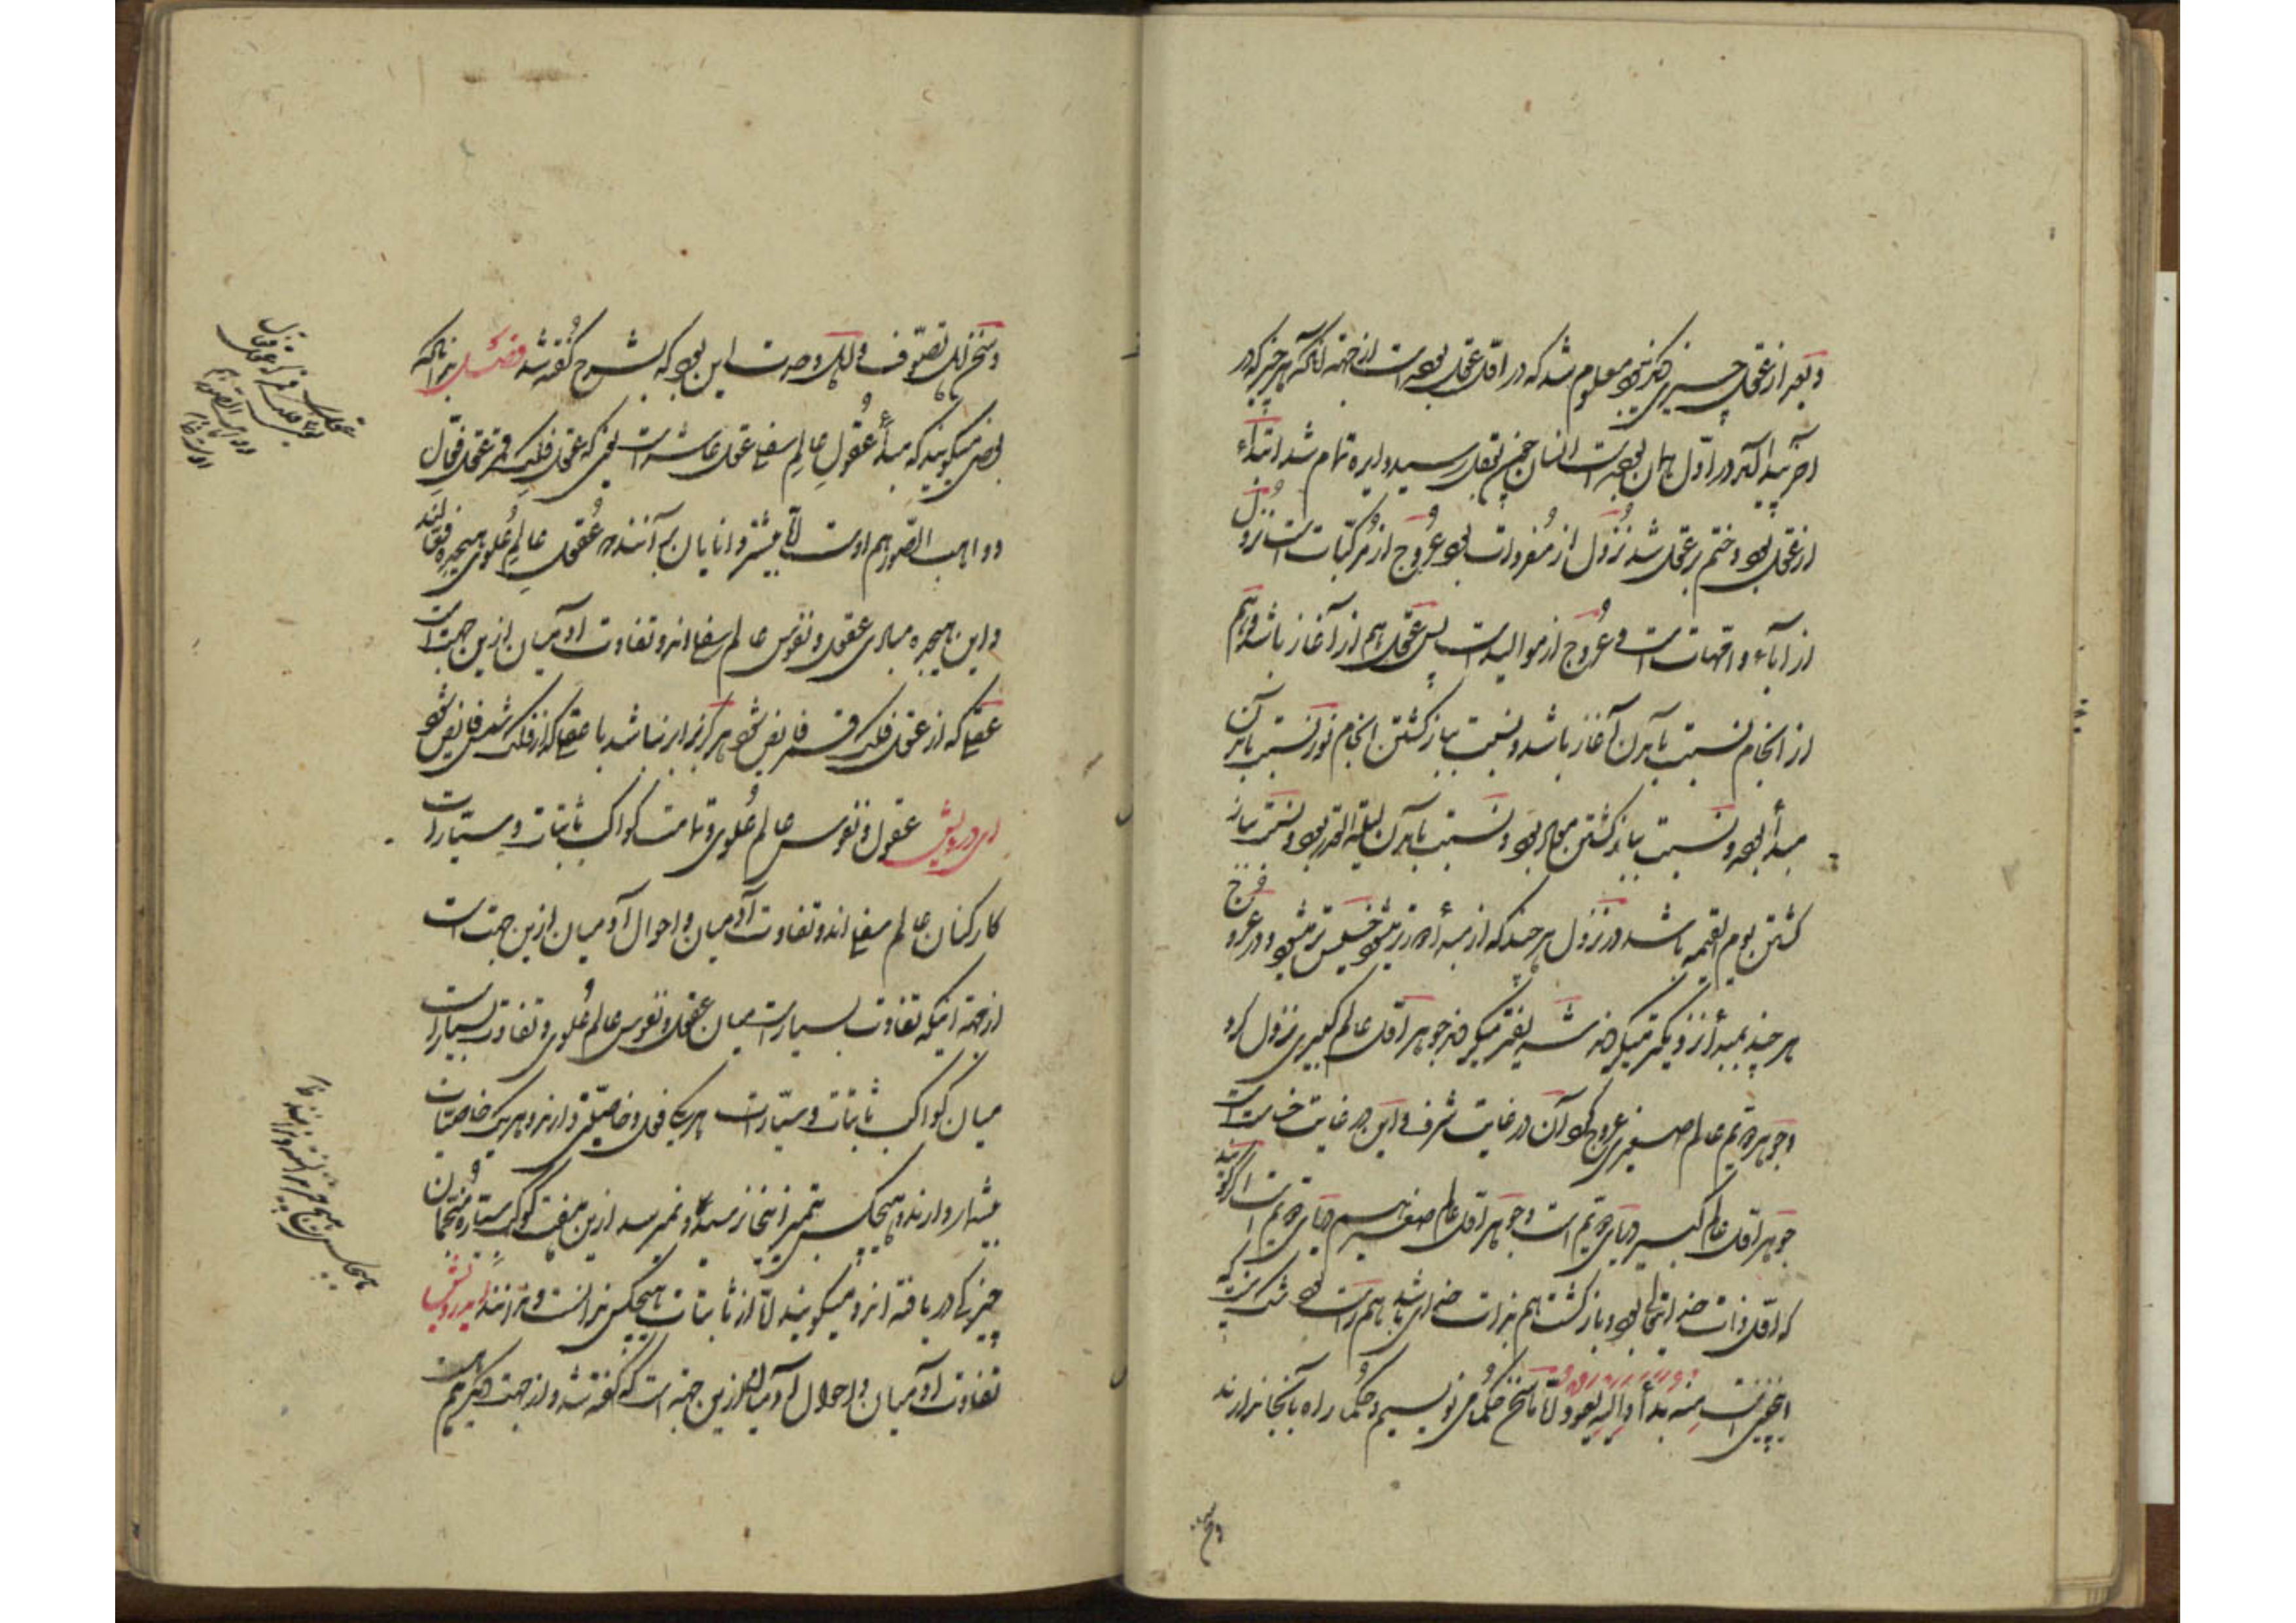 و بعد از عقل چیزی دیگر نبود معلوم شد که در اول عقل بوده است از جهت آنکه هر چیز که در
آخر پیدا آید در اول همان بوده است انسان چون بعقل رسید دایره تمام شد ابتداء
از عقل بود و ختم بر عقل شد نزول از مفردات بود و عروج از مرکبات است نزول
از آباء و امهات است و عروج از موالید است پس عقل هم از آغاز باشد و هم
از انجام نسبت بآمدن آغاز باشد و نسبت بباز گشتن انجام بود نسبت بآمدن
مبدأ بود و نسبت بباز گشتن معاد بود و نسبت بآمدن لیلة القدر بود و نسبت بباز
گشتن یوم القیمه باشد در نزول هر چند که از مبدأ دورتر میشود خسیس‌تر میشود و در عروج
هر چند بمبدأ نزدیکتر میگردد شریفتر میگردد جوهر اول عالم کبیری نزول کرد
و جوهر دویم عالم صغیری عروج کرد آن در غایت شرف و این در غایت خست است
جوهر اول عالم کبیر دریای دویم است و جوهر اول عالم صغیر هم دریای دویم است اگر گویند
که اول ذات خدای تعالی بود و بازگشت هم بذات خدای باشد هم راست بود شک نیست که
اینچنین است منه بدأ و الیه یعود اما ما سخن حکما می نویسیم و حکما راه بآنجا ندارند
و سخن
و سخن اهل تصوف و اهل وحدت این بود که بشرح گفته شد فصل بدانکه
بعضی میگویند که مبدأ عقول عالم سفلی عقل عاشر است یعنی که عقل فلک قمر عقل فعال
و واهب الصور هم اوست اما بیشتر دانایان بر آنند که عقول عالم علوی همه فعالند
و این همه مبادی عقول و نفوس عالم سفلی اند و تفاوت آدمیان ازین جهت است
عقلی که از عقل فلک قمر فایض شود هرگز برابر نباشد با عقلی که از فلک شمس فایض شود
ای درویش عقول و نفوس عالم علوی و تمامت کواکب ثابتات و سیارات
کارکنان عالم سفلی اند و تفاوت آدمیان و احوال آدمیان ازین جهت است
از جهة آنکه تفاوت بسیار است میان عقول و نفوس عالم علوی و تفاوت بسیار است
میان کواکب ثابتات و سیارات هر یکی فعلی و خاصیتی دارند و هر یک خاصیات
بیشمار دارند و هیچکس بتمیز آنجا نرسید و نمیرسد ازین هفت کوکب سیاره منجمان
چیزکی دریافته اند و میگویند اما از ثابتات هیچکس ندانست و ندانند ای درویش
تفاوت آدمیان و احوال آدمیان ازین جهة است که گفته شد و از جهت دیگر هم هست